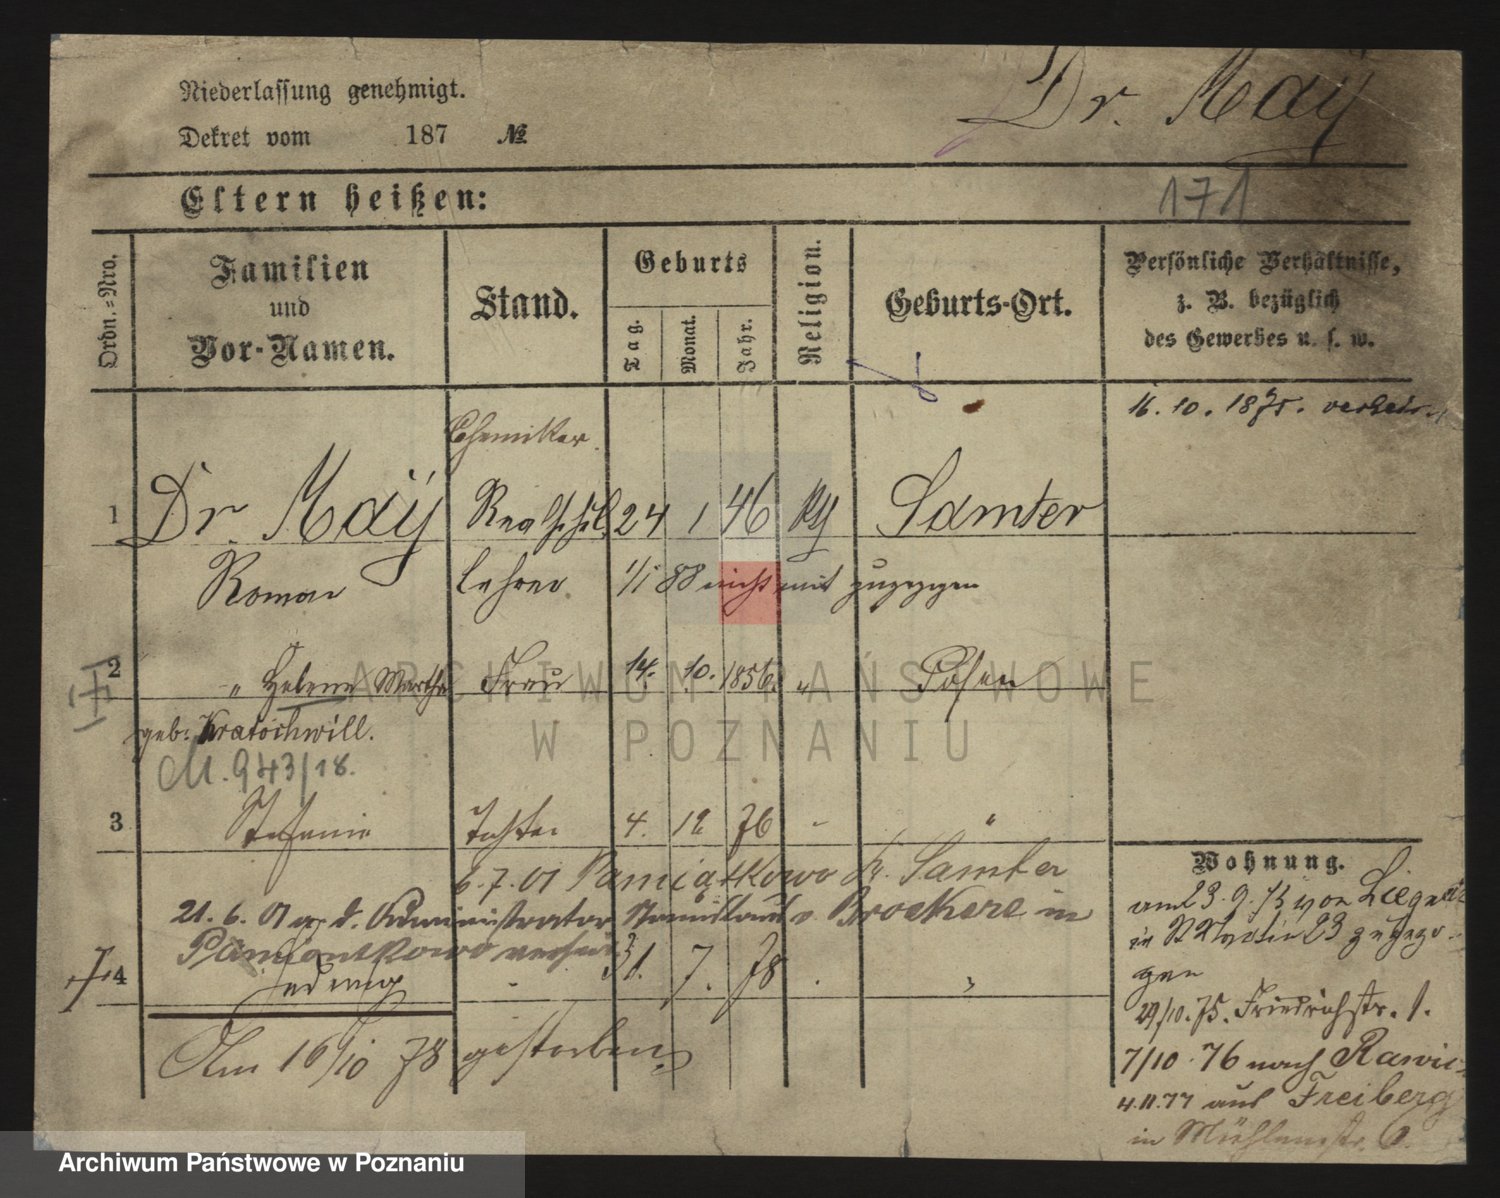 Niederlassung genehmigt.
Dekret vom 187 №
Dr. Maÿ
171
Eltern heißen:
Ordn.-Nro.
Familien
und
Vor-Namen.
Stand.
Geburts
Tag.
Monat.
Jahr.
Religion.
Geburts-Ort.
Persönliche Verhältnisse,
z. B. bezüglich
des Gewerbes u. s. w.
16. 10. 1875. verheir.
Chemiker
1 Dr. Maÿ Realschul 24 1 46 Samter
Roman lehrer 1/1 88 nicht mit zugezogen
2 " Helene Martha Frau 14. 10. 1856. " Posen
geb: Kratochwill.
M. 943/18.
3 Stefanie Tochter 4. 12 76 - "
6.7.01 Pamiątkowo Kr. Samter
21. 6. 01 a. d. Administrator Stanislaus v. Brockere in
Pamiontkowo verheir.
4 Hedwig - 31. 7. 78 . "
Am 16/10 78 gestorben.
Wohnung.
am 23. 9. 75 von Liegnitz
in St Martin 23 zugezo-
gen
29/10. 75. Friedrichstr. 1.
7/10 76 nach Rawic
4.11.77 aus Freiberg
in Mühlenstr. 6.
ARCHIWUM PAŃSTWOWE
W POZNANIU
Archiwum Państwowe w Poznaniu